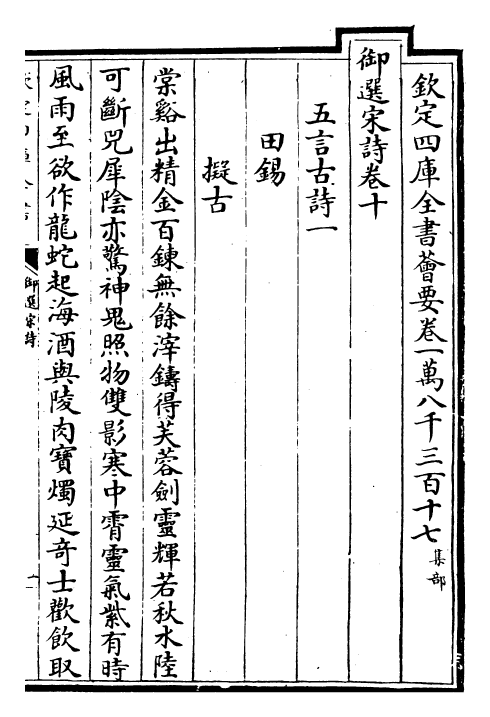 欽定四庫全書薈要卷一萬八千三百十七集部
御選宋詩卷十
五言古詩一
田錫
擬古
棠谿出精金百鍊無餘滓鑄得芙蓉劍靈輝若秋水陸
可斷兕犀陰亦驚神鬼照物雙影寒中霄靈氣紫有時
風雨至欲作龍蛇起海酒與陵肉寶燭延奇士歡飲取
御選宋詩